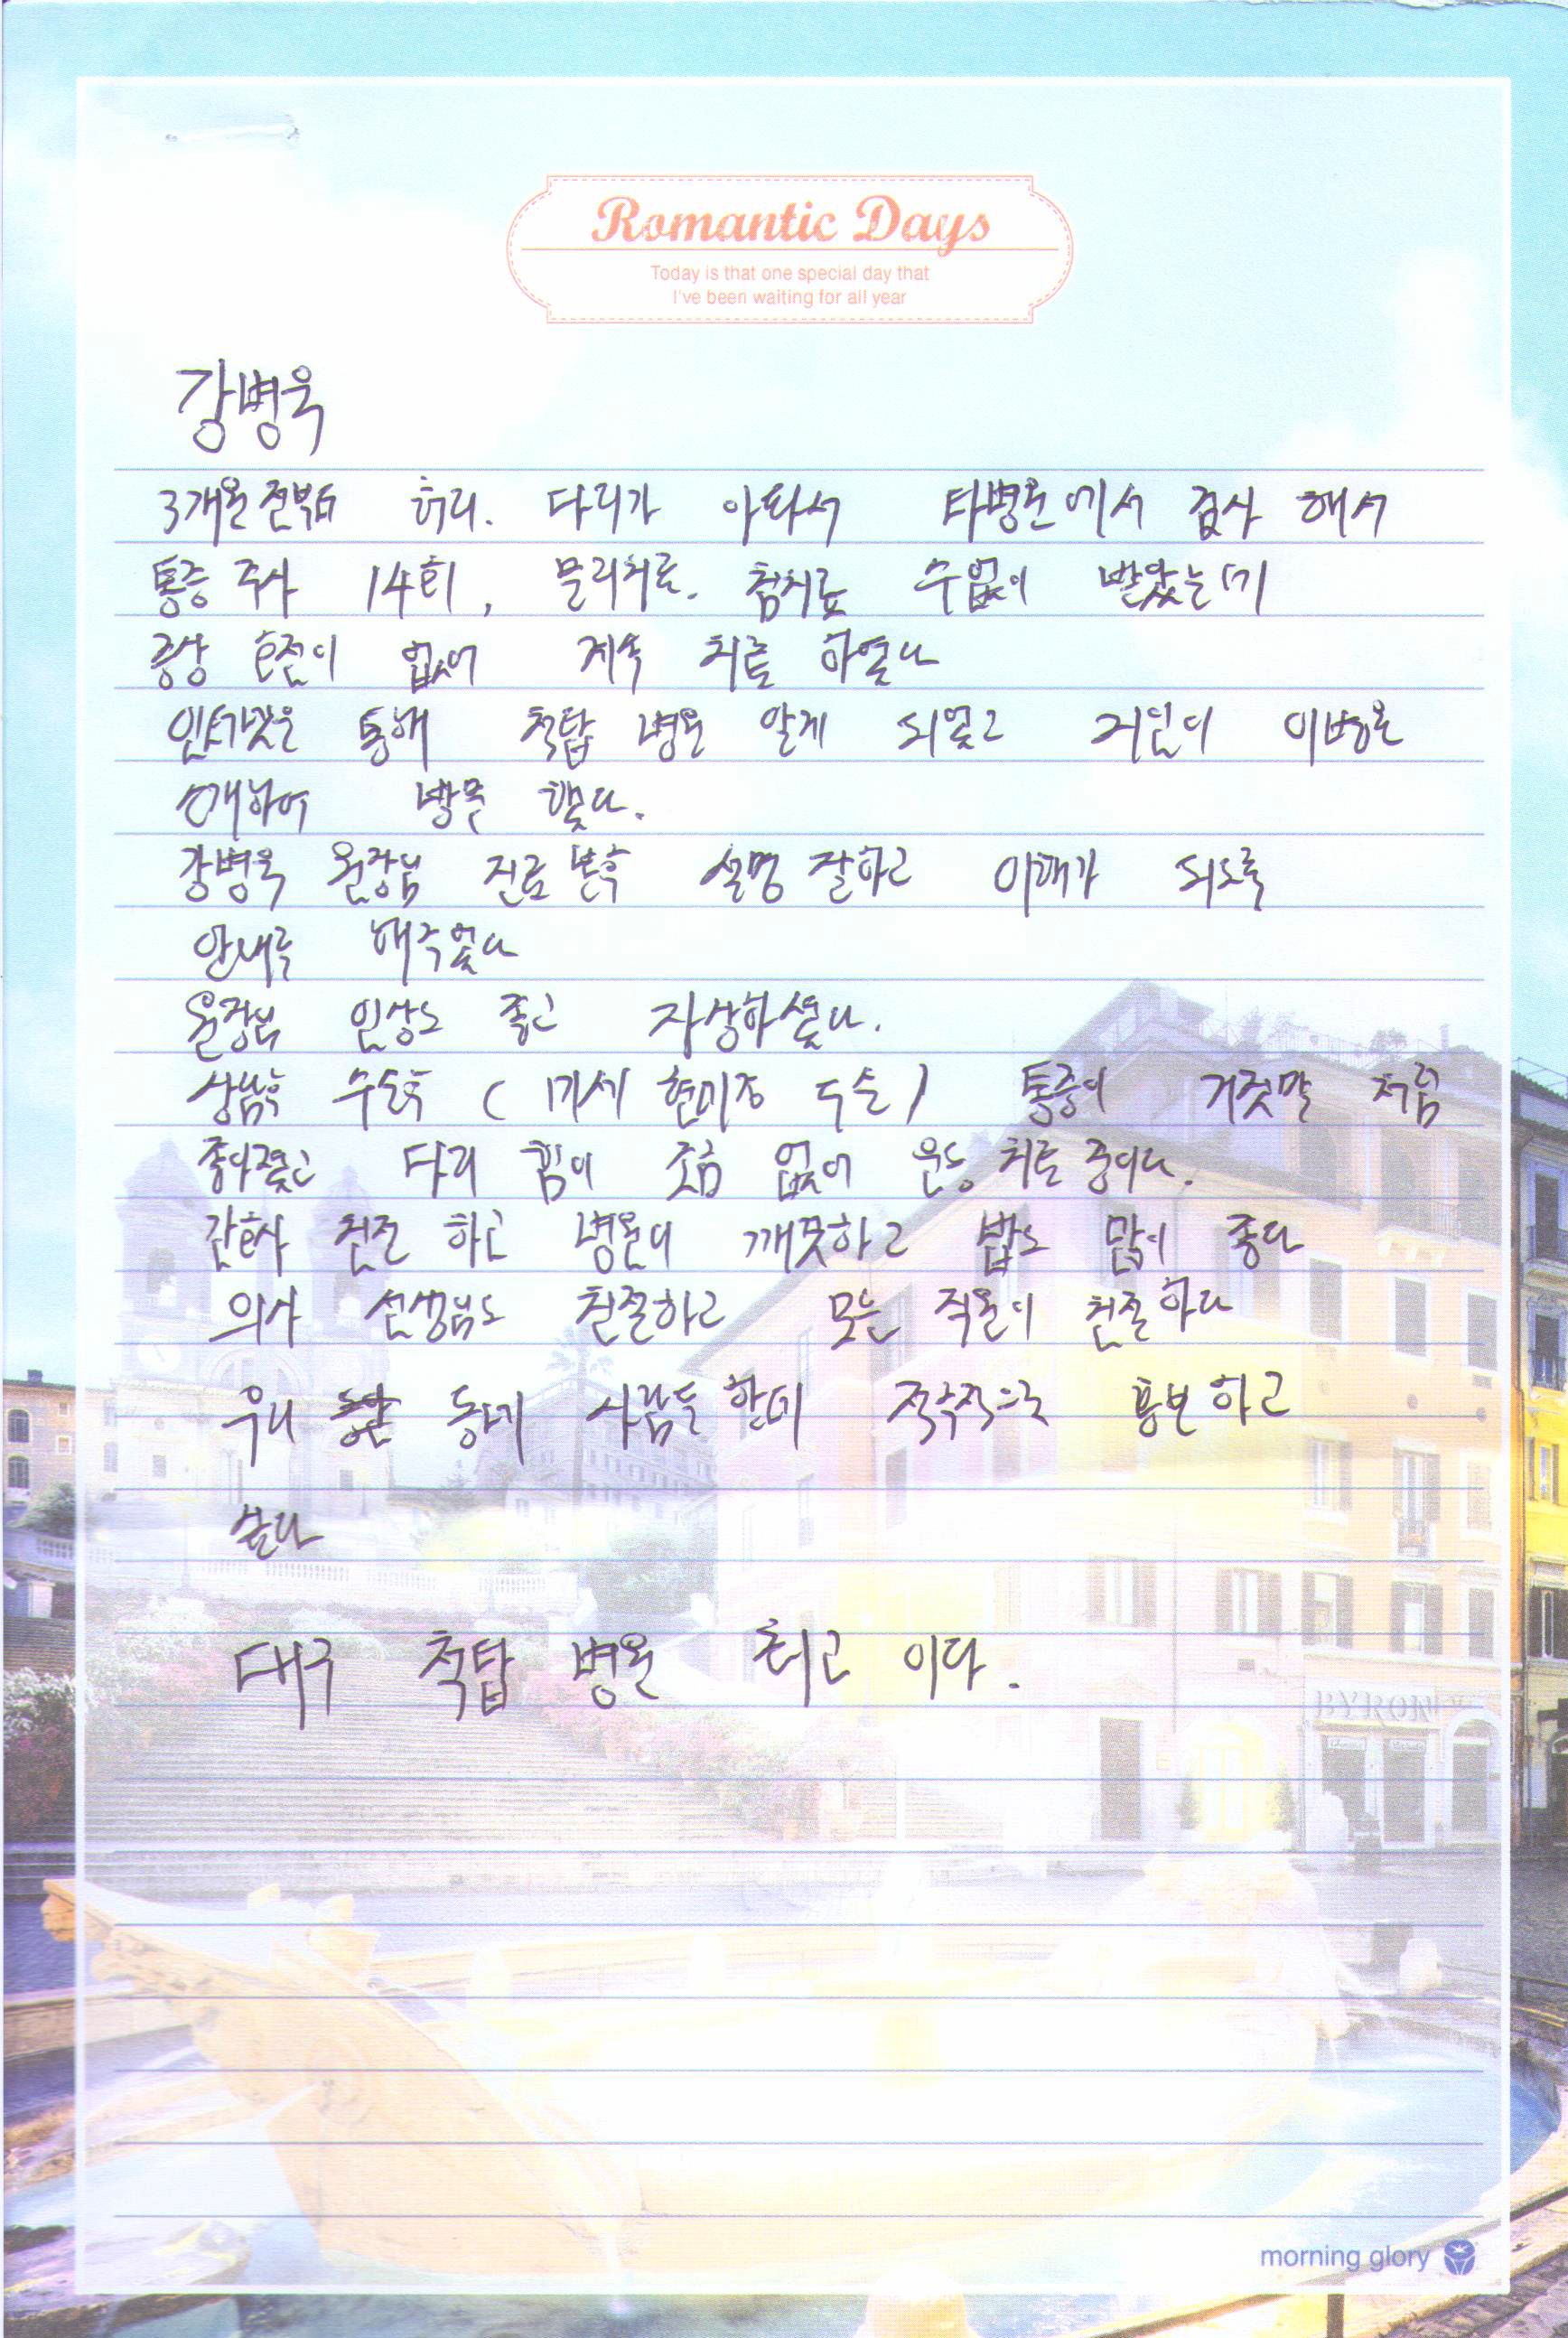 Romantic Days
Today is that one special day that
I've been waiting for all year
강병욱
3개월 전부터 허리. 다리가 아파서 타병원에서 검사 해서
통증 주사 14회, 물리치료. 침치료 수없이 받았는데
증상 호전이 없어 계속 치료 하였다
인터넷은 통해 척탑 병원 알게 되었고 지인이 이병원
소개하여 방문 했다.
강병욱 원장님 진료 본후 설명 잘하고 이해가 되도록
안내를 해주었다
원장님 인상도 좋고 자상하셨다.
상담후 수술후 ( 미세 현미경 수술 ) 통증이 거짓말 처럼
좋아졌고 다리 힘이 조금 없어 운동 치료 중이다.
간호사 친절 하고 병원이 깨끗하고 밥도 맛이 좋다
의사 선생님도 친절하고 모든 직원이 친절하다
우리 동네 사람들 한테 적극적으로 홍보 하고
싶다
대구 척탑 병원 최고 이다.
BYRON
morning glory